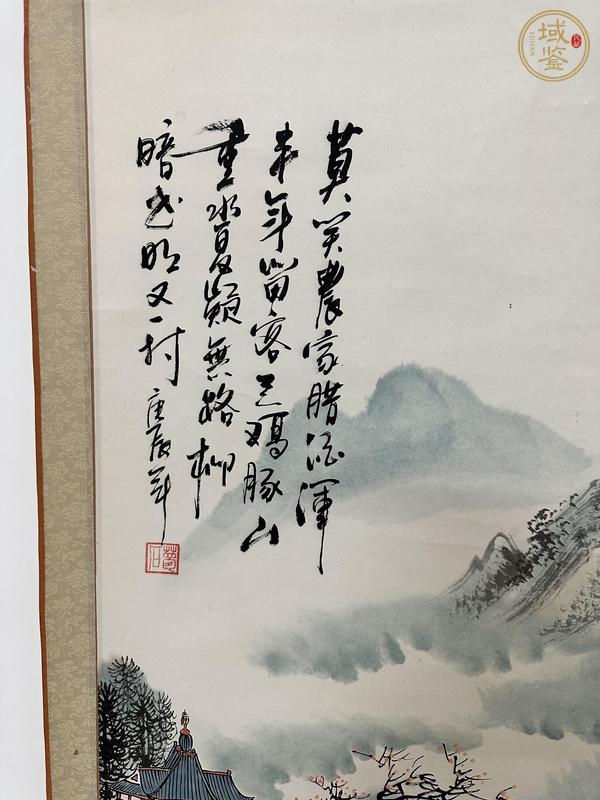 域鉴
YUJIAN
莫笑農家腊酒渾
丰年留客足鸡豚山
重水复疑無路柳
暗花明又一村 庚辰年